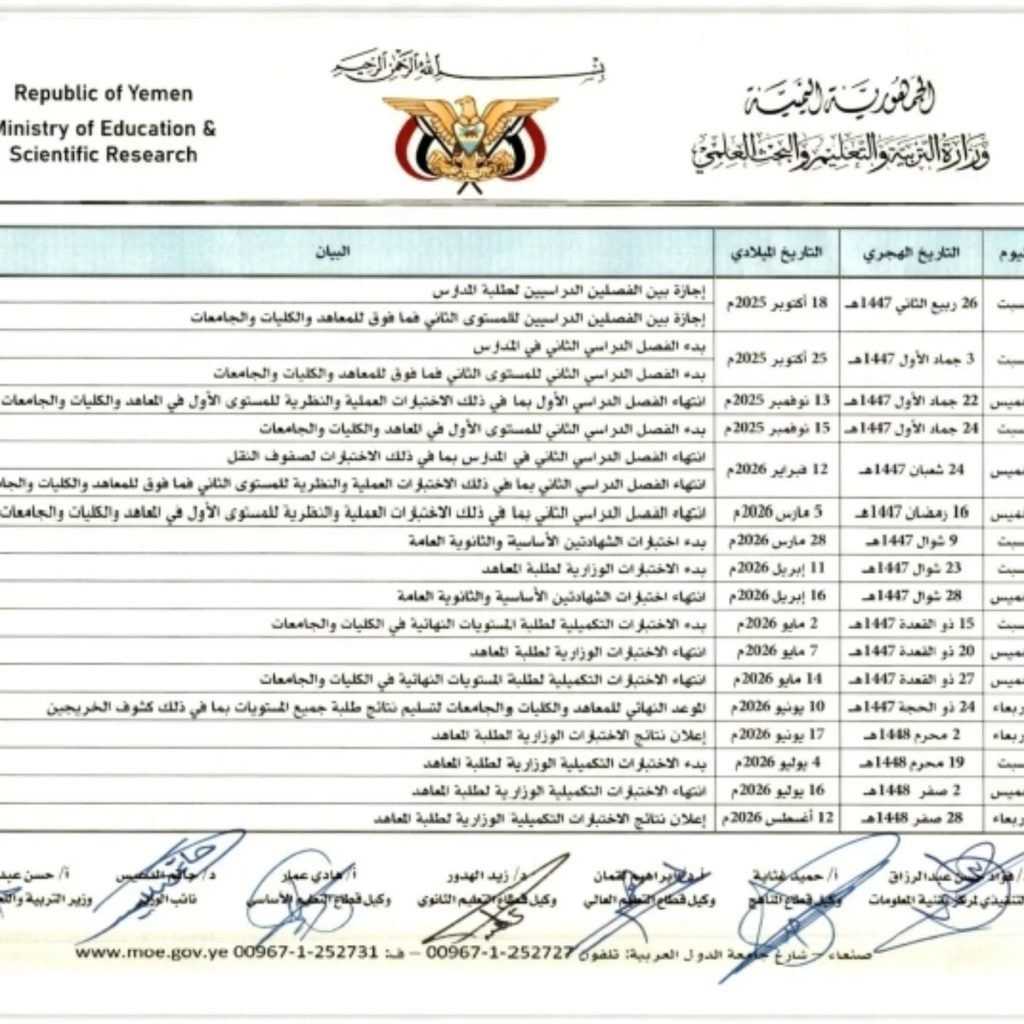 بسم الله الرحمن الرحيم
الجمهورية اليمنية
وزارة التربية والتعليم والبحث العلمي
Republic of Yemen
Ministry of Education &
Scientific Research
التاريخ الهجري التاريخ الميلادي البيان
26 ربيع الثاني 1447هـ 18 أكتوبر 2025م إجازة بين الفصلين الدراسيين لطلبة المدارس
إجازة بين الفصلين الدراسيين للمستوى الثاني فما فوق للمعاهد والكليات والجامعات
3 جماد الأول 1447هـ 25 أكتوبر 2025م بدء الفصل الدراسي الثاني في المدارس
بدء الفصل الدراسي الثاني للمستوى الثاني فما فوق للمعاهد والكليات والجامعات
22 جماد الأول 1447هـ 13 نوفمبر 2025م انتهاء الفصل الدراسي الأول بما في ذلك الاختبارات العملية والنظرية للمستوى الأول في المعاهد والكليات والجامعات
24 جماد الأول 1447هـ 15 نوفمبر 2025م بدء الفصل الدراسي الثاني للمستوى الأول في المعاهد والكليات والجامعات
24 شعبان 1447هـ 12 فبراير 2026م انتهاء الفصل الدراسي الثاني في المدارس بما في ذلك الاختبارات لصفوف النقل
انتهاء الفصل الدراسي الثاني بما في ذلك الاختبارات العملية والنظرية للمستوى الثاني فما فوق للمعاهد والكليات
16 رمضان 1447هـ 5 مارس 2026م انتهاء الفصل الدراسي الثاني بما في ذلك الاختبارات العملية والنظرية للمستوى الأول في المعاهد والكليات والجامعات
9 شوال 1447هـ 28 مارس 2026م بدء اختبارات الشهادتين الأساسية والثانوية العامة
23 شوال 1447هـ 11 إبريل 2026م بدء الاختبارات الوزارية لطلبة المعاهد
28 شوال 1447هـ 16 إبريل 2026م انتهاء اختبارات الشهادتين الأساسية والثانوية العامة
15 ذو القعدة 1447هـ 2 مايو 2026م بدء الاختبارات التكميلية لطلبة المستويات النهائية في الكليات والجامعات
20 ذو القعدة 1447هـ 7 مايو 2026م انتهاء الاختبارات الوزارية لطلبة المعاهد
27 ذو القعدة 1447هـ 14 مايو 2026م انتهاء الاختبارات التكميلية لطلبة المستويات النهائية في الكليات والجامعات
24 ذو الحجة 1447هـ 10 يونيو 2026م الموعد النهائي للمعاهد والكليات والجامعات لتسليم نتائج طلبة جميع المستويات بما في ذلك كشوف الخريجين
2 محرم 1448هـ 17 يونيو 2026م إعلان نتائج الاختبارات الوزارية لطلبة المعاهد
19 محرم 1448هـ 4 يوليو 2026م بدء الاختبارات التكميلية الوزارية لطلبة المعاهد
2 صفر 1448هـ 16 يوليو 2026م انتهاء الاختبارات التكميلية الوزارية لطلبة المعاهد
28 صفر 1448هـ 12 أغسطس 2026م إعلان نتائج الاختبارات التكميلية الوزارية لطلبة المعاهد
عبدالرزاق أ/ حميد إبراهيم لقمان د/ زيد الهدور أ/ هادي عمار د/ حاتم الدعيس أ/ حسن
لمركز تقنية المعلومات وكيل قطاع المناهج وكيل قطاع التعليم العالي وكيل قطاع التعليم الثانوي وكيل قطاع التعليم الأساسي نائب الوزير وزير التربية
صنعاء – شارع جامعة الدول العربية: تلفون 252727-1-00967 – ف: 252731-1-00967 www.moe.gov.ye